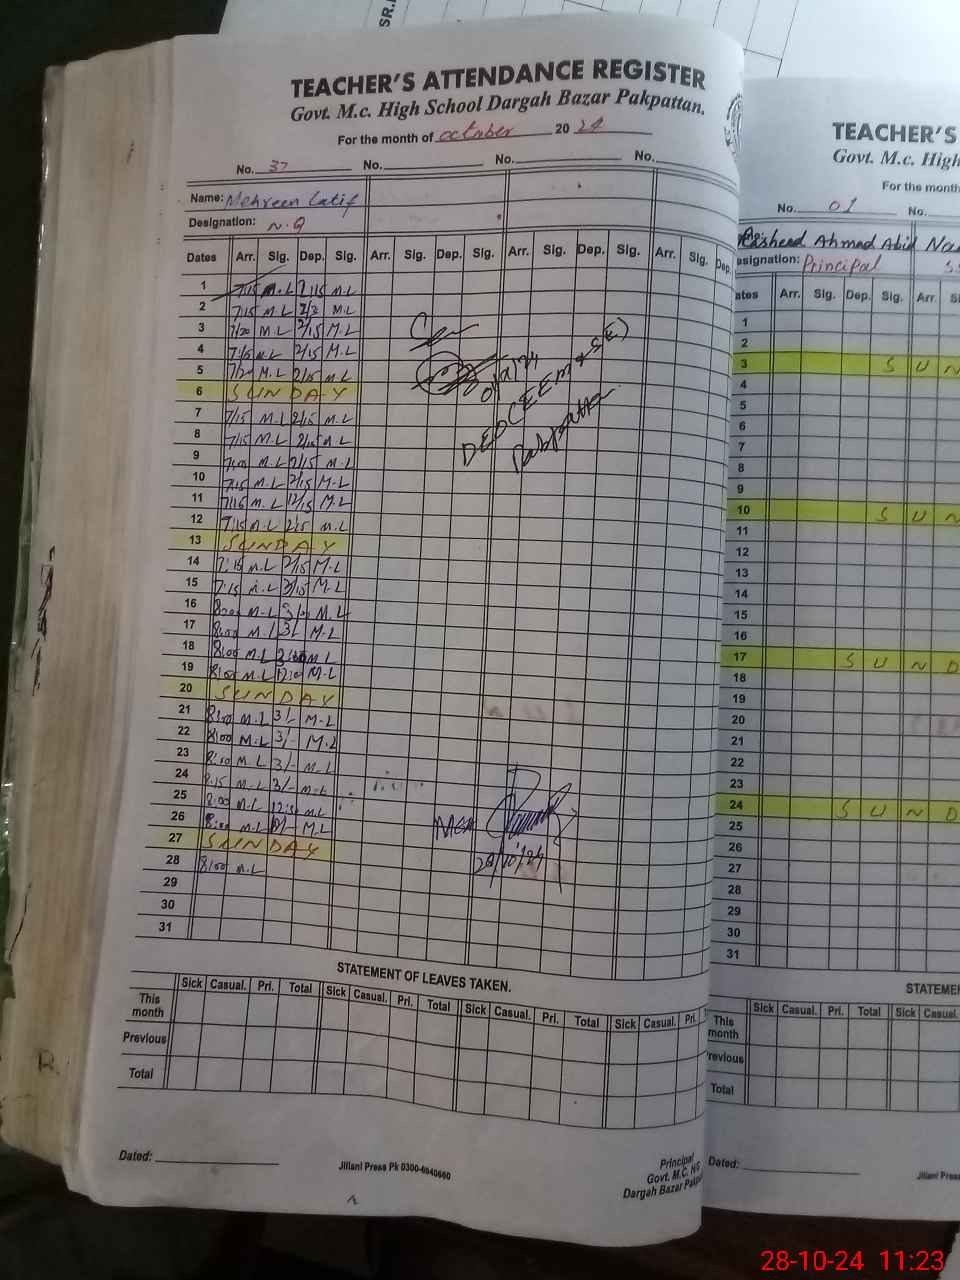 SR.
TEACHER'S ATTENDANCE REGISTER
Govt. M.c. High School Dargah Bazar Pakpattan.
For the month of october 2024
No. 37 No. No. No.
Name: Mehreen Latif
Designation: N.Q
Dates Arr. Sig. Dep. Sig. Arr. Sig. Dep. Sig. Arr. Sig. Dep. Sig. Arr. Sig. Dep.
1 7/15 M.L 2/15 M.L
2 7/15 M.L M.L
3 7/20 M.L 2/15 M.L
4 7/15 M.L 2/15 M.L
5 M.L 2/15 M.L
6 SUNDAY
7 7/15 M.L 2/15 M.L
8 7/15 M.L M.L
9 M.L 2/15 M.L
10 7/15 M.L 2/15 M.L
11 M.L 12/15 M.L
12 7/15 M.L M.L
13 SUNDAY
14 7:15 M.L 2/15 M.L
15 7:15 M.L 2/15 M.L
16 8:00 M.L M.L
17 8:00 M.L 3/- M.L
18 8:00 M.L M.L
19 8:00 M.L M.L
20 SUNDAY
21 8:00 M.L 3/- M.L
22 8:00 M.L 3/- M.L
23 M.L 3/- M.L
24 8:15 M.L 3/- M.L
25 8:00 M.L 12:30 M.L
26 M.L M.L
27 SUNDAY
28 8:00 M.L
29
30
31
DEO (EE M & SE)
Pakpattan
28/10/24
STATEMENT OF LEAVES TAKEN.
Sick Casual. Pri. Total Sick Casual. Pri. Total Sick Casual. Pri. Total Sick Casual. Pri.
This month
Previous
Total
Dated:
Jillani Press Pk 0300-6940660
Principal
Govt. M.C. H/S
Dargah Bazar Pakp
TEACHER'S
Govt. M.c. High
For the month
No. 01 No.
Rasheed Ahmad Abid
esignation: Principal
ates Arr. Sig. Dep. Sig. Arr. Sig.
1
2
3 SUN
4
5
6
7
8
9
10 SUN
11
12
13
14
15
16
17 SUND
18
19
20
21
22
23
24 SUND
25
26
27
28
29
30
31
STATEMEN
Sick Casual. Pri. Total Sick Casual.
This month
Previous
Total
Dated:
Jillani Press
28-10-24 11:23